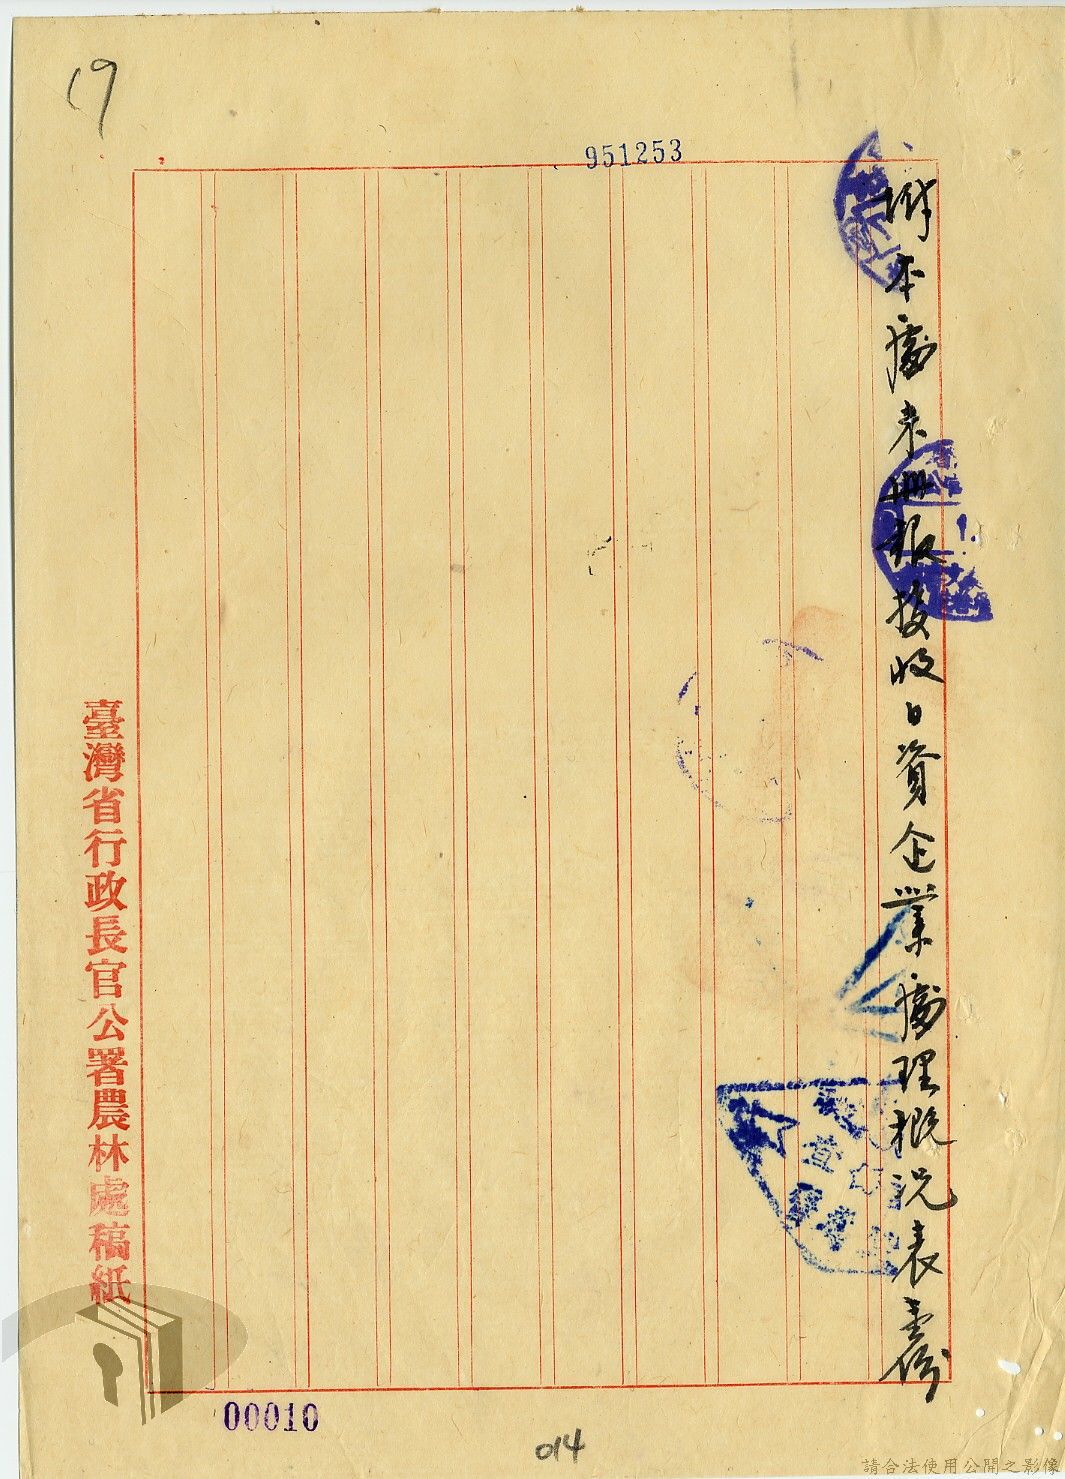 19
951253
附本處未冊報接收日資企業處理概況表壹份
臺灣省行政長官公署農林處稿紙
00010
014
請合法使用公開之影像